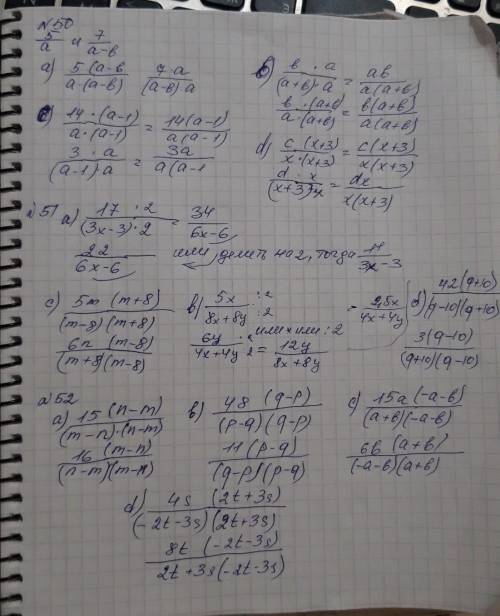 №50
5/a и 7/a-в
а) 5(a-в/a·(a-в) 7·a/(a-в)a
б) в·a/(a+в)·a = aв/a(a+в)
в·(a+в)/a·(a+в) = в(a+в)/a(a+в)
c) 14·(a-1)/a·(a-1) = 14(a-1)/a(a-1)
3·a/(a-1)a = 3a/a(a-1
d) c(x+3)/x·(x+3) = c(x+3)/x(x+3)
d·x/(x+3)·x = dx/x(x+3)
№51 a) 17·2/(3x-3)·2 = 34/6x-6
22/6x-6 или делить на 2, тогда 11/3x-3
c) 5m(m+8)/(m-8)(m+8)
6n(m-8)/(m+8)(m-8)
в) 5x:2/8x+8y:2 = 2,5x/4x+4y
или или :2
6y·2/4x+4y·2 = 12y/8x+8y
d) 42(q+10)/(q-10)(q+10)
3(q-10)/(q+10)(q-10)
№52
a) 15(n-m)/(m-n)·(n-m)
16(m-n)/(n-m)(m-n)
в) 48(q-p)/(p-q)(q-p)
11(p-q)/(q-p)(p-q)
c) 15a(-a-в)/(a+в)(-a-в)
6в(a+в)/(-a-в)(a+в)
d) 4s(2t+3s)/(-2t-3s)(2t+3s)
8t(-2t-3s)/2t+3s(-2t-3s)